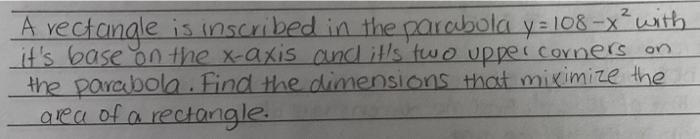 A rectangle is inscribed in the parabola y = 108 - x² with
it's base on the x-axis and it's two upper corners on
the parabola. Find the dimensions that miximize the
area of a rectangle.